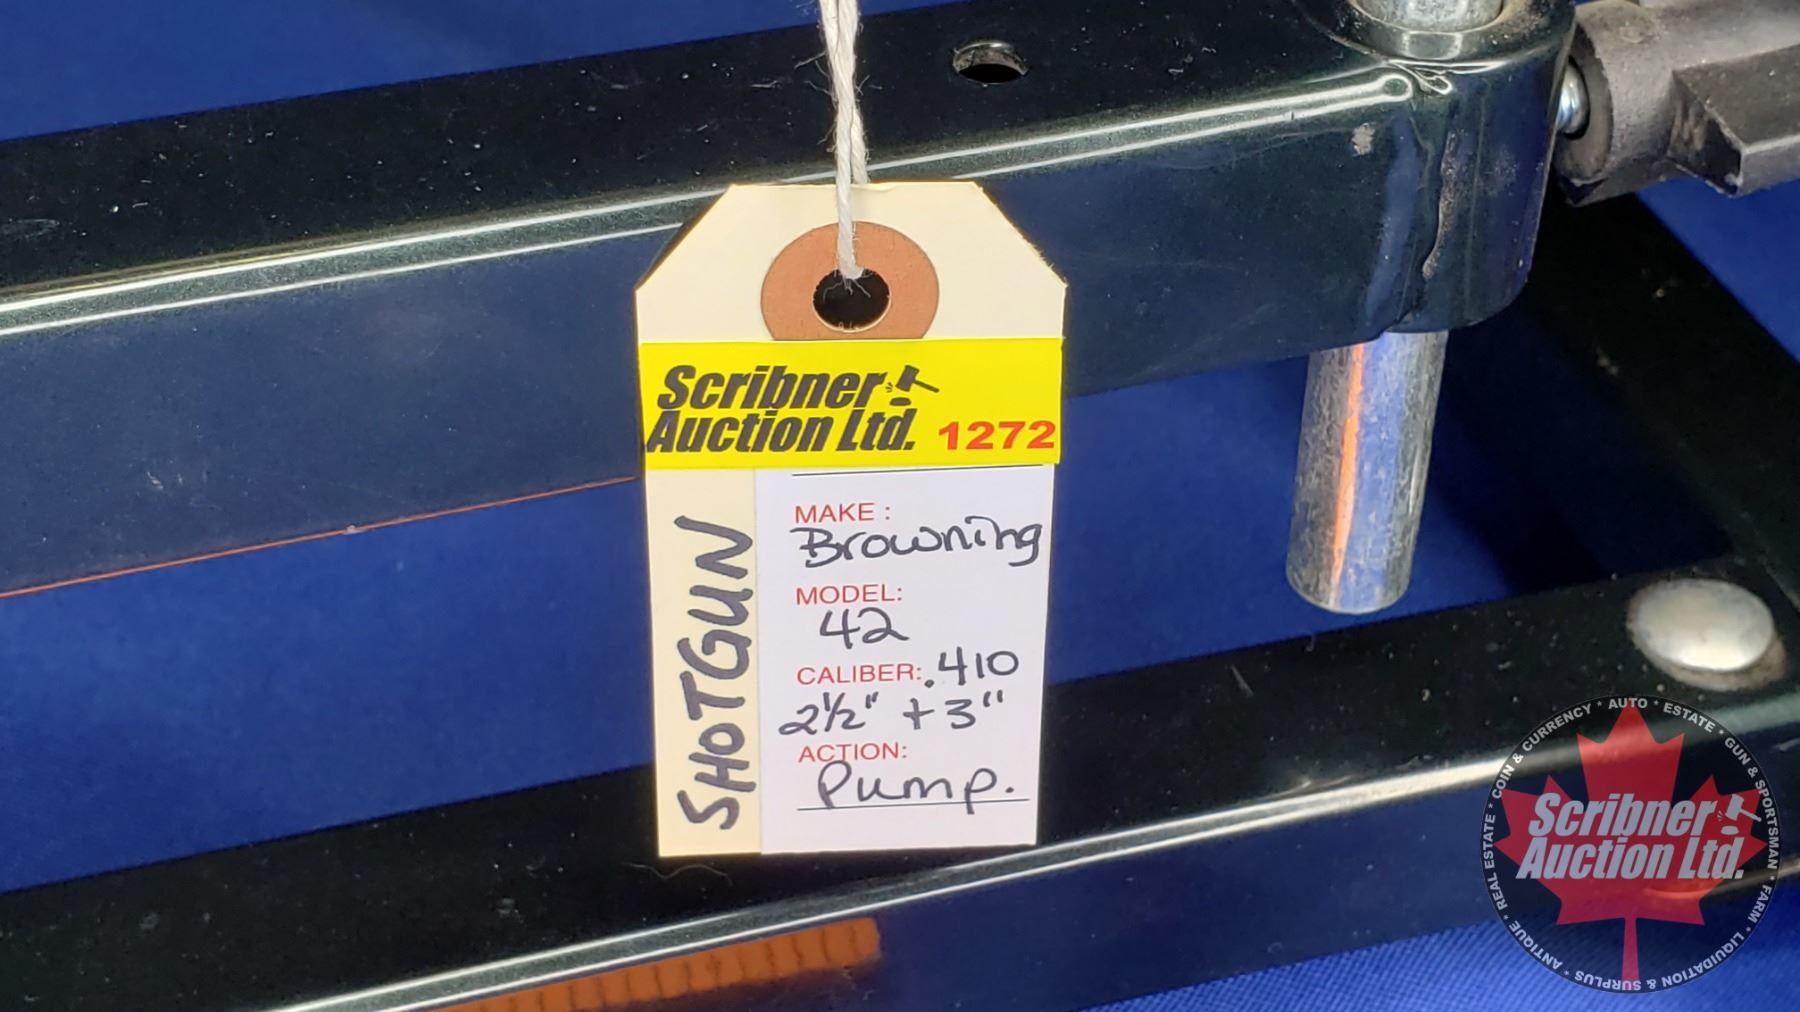 Scribner
Auction Ltd. 1272
SHOTGUN
MAKE :
Browning
MODEL:
42
CALIBER: .410
2½" + 3"
ACTION:
Pump.
COIN & CURRENCY * AUTO * ESTATE * GUN & SPORTSMAN * FARM * LIQUIDATION & SURPLUS * ANTIQUE * REAL ESTATE *
Scribner
Auction Ltd.